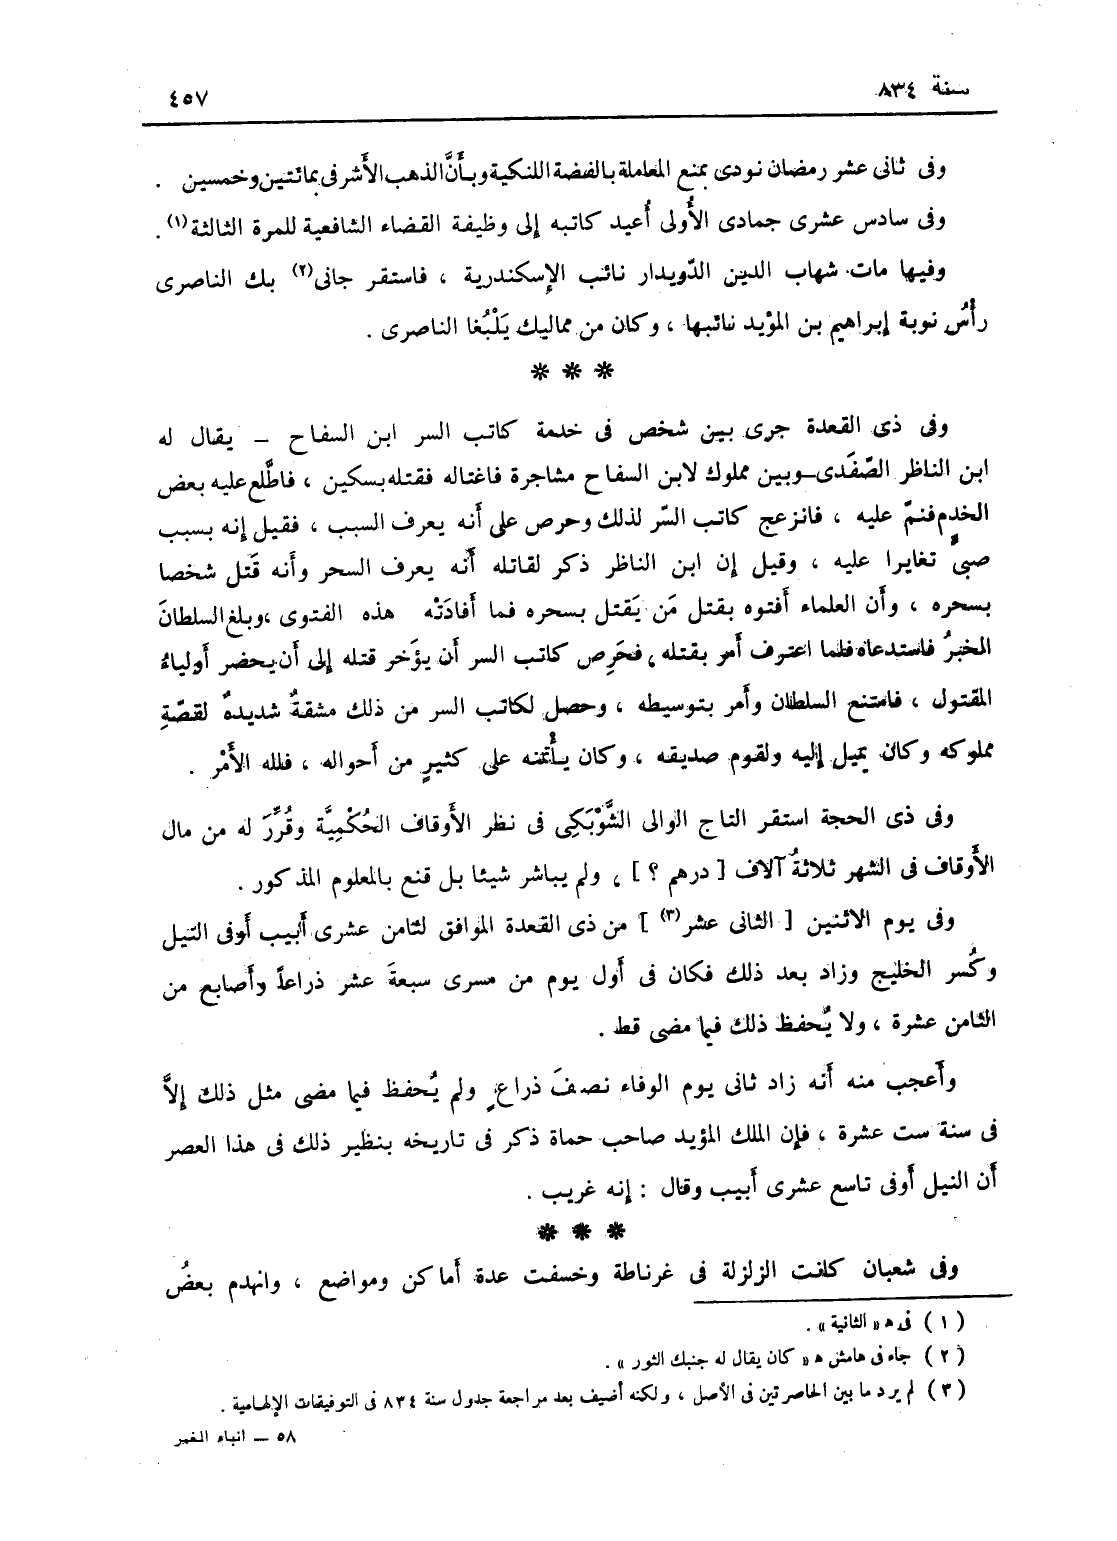 سنة ٨٣٤
٤٥٧
وفى ثانى عشر رمضان نودى بمنع المعاملة بالفضة اللنكية وبأَنَّ الذهب الأَشرفى بمائتين وخمسين .
وفى سادس عشرى جمادى الأُولى أُعيد كاتبه إلى وظيفة القضاء الشافعية للمرة الثالثة (١) .
وفيها مات شهاب الدين الدّويدار نائب الإسكندرية ، فاستقر جانى(٢) بك الناصرى
رأْسُ نوبة إبراهيم بن المؤيد نائبها ، وكان من مماليك يَلْبُغا الناصرى .
* * *
وفى ذى القعدة جرى بين شخص فى خدمة كاتب السر ابن السفاح – يقال له
ابن الناظر الصَّفَدى – وبين مملوك لابن السفاح مشاجرة فاغتاله فقتله بسكين ، فاطَّلع عليه بعض
الخدم فنمّ عليه ، فانزعج كاتب السّر لذلك وحرص على أَنه يعرف السبب ، فقيل إنه بسبب
صبىٍّ تغايرا عليه ، وقيل إن ابن الناظر ذكر لقاتله أَنه يعرف السحر وأَنه قَتل شخصا
بسحره ، وأَن العلماء أَفتوه بقتل مَن يَقتل بسحره فما أَفادَتْه هذه الفتوى ، وبلغ السلطانَ
الخبرُ فاستدعاه فلما اعترف أَمر بقتله ، فحَرِص كاتب السر أن يؤَخر قتله إلى أَن يحضر أَولياءُ
المقتول ، فامتنع السلطان وأَمر بتوسيطه ، وحصل لكاتب السر من ذلك مشقةٌ شديدةٌ لقصّةِ
مملوكه وكان يميل إليه ولقوم صديقه ، وكان يأْتمنه على كثيرٍ من أَحواله ، فلله الأَمْر .
وفى ذى الحجة استقر التاج الوالى الشَّوْبَكِى فى نظر الأَوقاف الحُكْمِيَّة وقُرِّرَ له من مال
الأَوقاف فى الشهر ثلاثةُ آلاف [ درهم ؟ ] ، ولم يباشر شيئا بل قنع بالمعلوم المذكور .
وفى يوم الاثنين [ الثانى عشر(٣) ] من ذى القعدة الموافق لثامن عشرى أَبيب أَوفى النيل
وكُسر الخليج وزاد بعد ذلك فكان فى أَول يوم من مسرى سبعةَ عشر ذراعاً وأَصابع من
الثامن عشرة ، ولا يُحفظ ذلك فيما مضى قط .
وأَعجب منه أَنه زاد ثانى يوم الوفاء نصفَ ذراع ولم يُحفظ فيما مضى مثل ذلك إلاَّ
فى سنة ست عشرة ، فإن الملك المؤيد صاحب حماة ذكر فى تاريخه بنظير ذلك فى هذا العصر
أَن النيل أَوفى تاسع عشرى أَبيب وقال : إنه غريب .
* * *
وفى شعبان كانت الزلزلة فى غرناطة وخسفت عدة أَماكن ومواضع ، وانهدم بعضُ
( ١ ) فى ه « الثانية » .
( ٢ ) جاء فى هامش ه « كان يقال له جنبك الثور » .
( ٣ ) لم يرد ما بين الحاصرتين فى الأصل ، ولكنه أضيف بعد مراجعة جدول سنة ٨٣٤ فى التوفيقات الإلهامية .
٥٨ – انباء الغمر